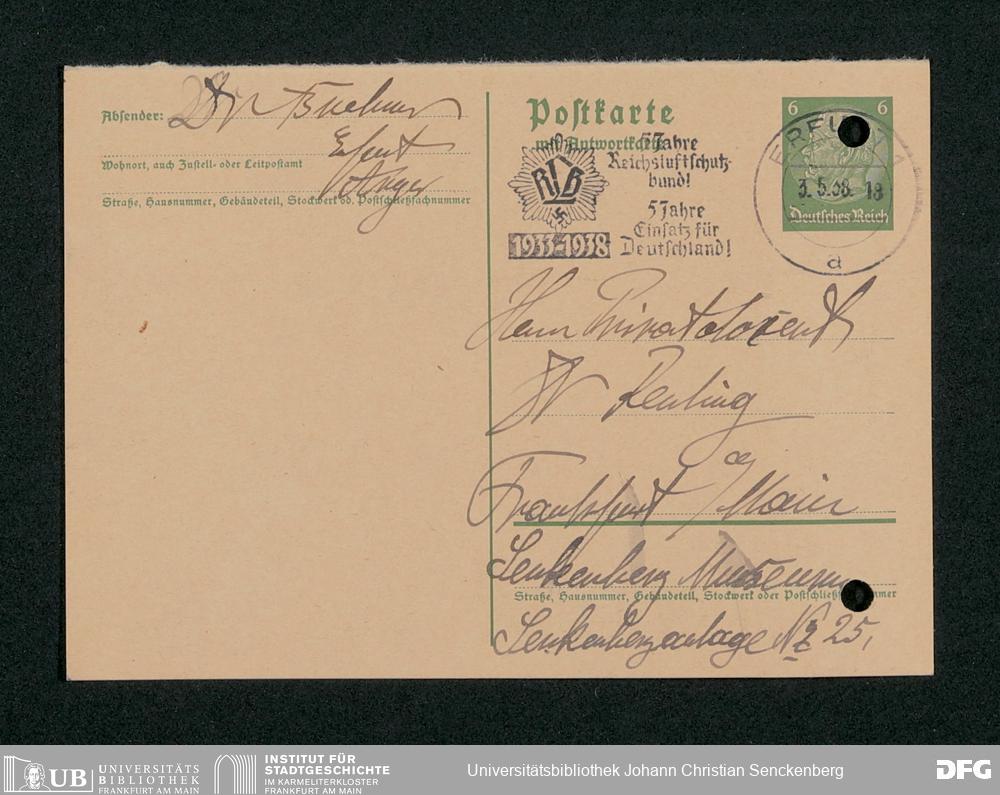 Absender: Dr
Erfurt
Wohnort, auch Zustell- oder Leitpostamt
Anger
Straße, Hausnummer, Gebäudeteil, Stockwerk od. Postschließfachnummer
Postkarte
mit Antwortkarte
RLB
1933-1938
5 Jahre
Reichsluftschutz-
bund!
5 Jahre
Einsatz für
Deutschland!
6 6
Deutsches Reich
ERFURT 1
3.5.38. 18
a
Herrn Privatdozent
Dr
Frankfurt a/Main
Senkenberg Museum
Straße, Hausnummer, Gebäudeteil, Stockwerk oder Postschließfachnummer
Senkenberganlage № 25,
UB UNIVERSITÄTS
BIBLIOTHEK
FRANKFURT AM MAIN
INSTITUT FÜR
STADTGESCHICHTE
IM KARMELITERKLOSTER
FRANKFURT AM MAIN
Universitätsbibliothek Johann Christian Senckenberg
DFG